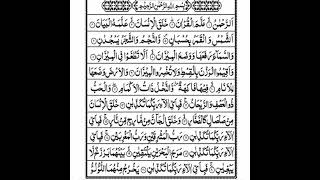 بِسْمِ اللّٰهِ الرَّحْمٰنِ الرَّحِيْمِ
اَلرَّحْمٰنُ ۝ عَلَّمَ الْقُرْاٰنَ ۝ خَلَقَ الْاِنْسَانَ ۝ عَلَّمَهُ الْبَيَانَ ۝
اَلشَّمْسُ وَالْقَمَرُ بِحُسْبَانٍ ۝ وَّالنَّجْمُ وَالشَّجَرُ يَسْجُدٰنِ ۝
وَالسَّمَآءَ رَفَعَهَا وَوَضَعَ الْمِيْزَانَ ۝ اَلَّا تَطْغَوْا فِي الْمِيْزَانِ ۝
وَاَقِيْمُوا الْوَزْنَ بِالْقِسْطِ وَلَا تُخْسِرُوا الْمِيْزَانَ ۝ وَالْاَرْضَ وَضَعَهَا
لِلْاَنَامِ ۝ فِيْهَا فَاكِهَةٌ وَّالنَّخْلُ ذَاتُ الْاَكْمَامِ ۝ وَالْحَبُّ
ذُو الْعَصْفِ وَالرَّيْحَانُ ۝ فَبِاَيِّ اٰلَآءِ رَبِّكُمَا تُكَذِّبٰنِ ۝ خَلَقَ الْاِنْسَانَ
مِنْ صَلْصَالٍ كَالْفَخَّارِ ۝ وَخَلَقَ الْجَآنَّ مِنْ مَّارِجٍ مِّنْ نَّارٍ ۝ فَبِاَيِّ
اٰلَآءِ رَبِّكُمَا تُكَذِّبٰنِ ۝ رَبُّ الْمَشْرِقَيْنِ وَرَبُّ الْمَغْرِبَيْنِ ۝ فَبِاَيِّ
اٰلَآءِ رَبِّكُمَا تُكَذِّبٰنِ ۝ مَرَجَ الْبَحْرَيْنِ يَلْتَقِيٰنِ ۝ بَيْنَهُمَا بَرْزَخٌ لَّا
يَبْغِيٰنِ ۝ فَبِاَيِّ اٰلَآءِ رَبِّكُمَا تُكَذِّبٰنِ ۝ يَخْرُجُ مِنْهُمَا اللُّؤْلُؤُ